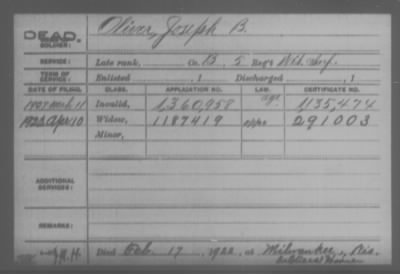 DEAD.
NAME OF SOLDIER: Oliver, Joseph B.
SERVICE: Late rank, Co. B, 5 Reg't Inf.
TERM OF SERVICE: Enlisted , 1 Discharged , 1
DATE OF FILING. CLASS. APPLICATION NO. LAW. CERTIFICATE NO.
Invalid, 1,360,958 age 1135,474
1922 Apr 10 Widow, 1187419 291003
Minor,
ADDITIONAL SERVICES:
REMARKS:
Died Feb. 17, 1922, at Milwaukee, Wis.